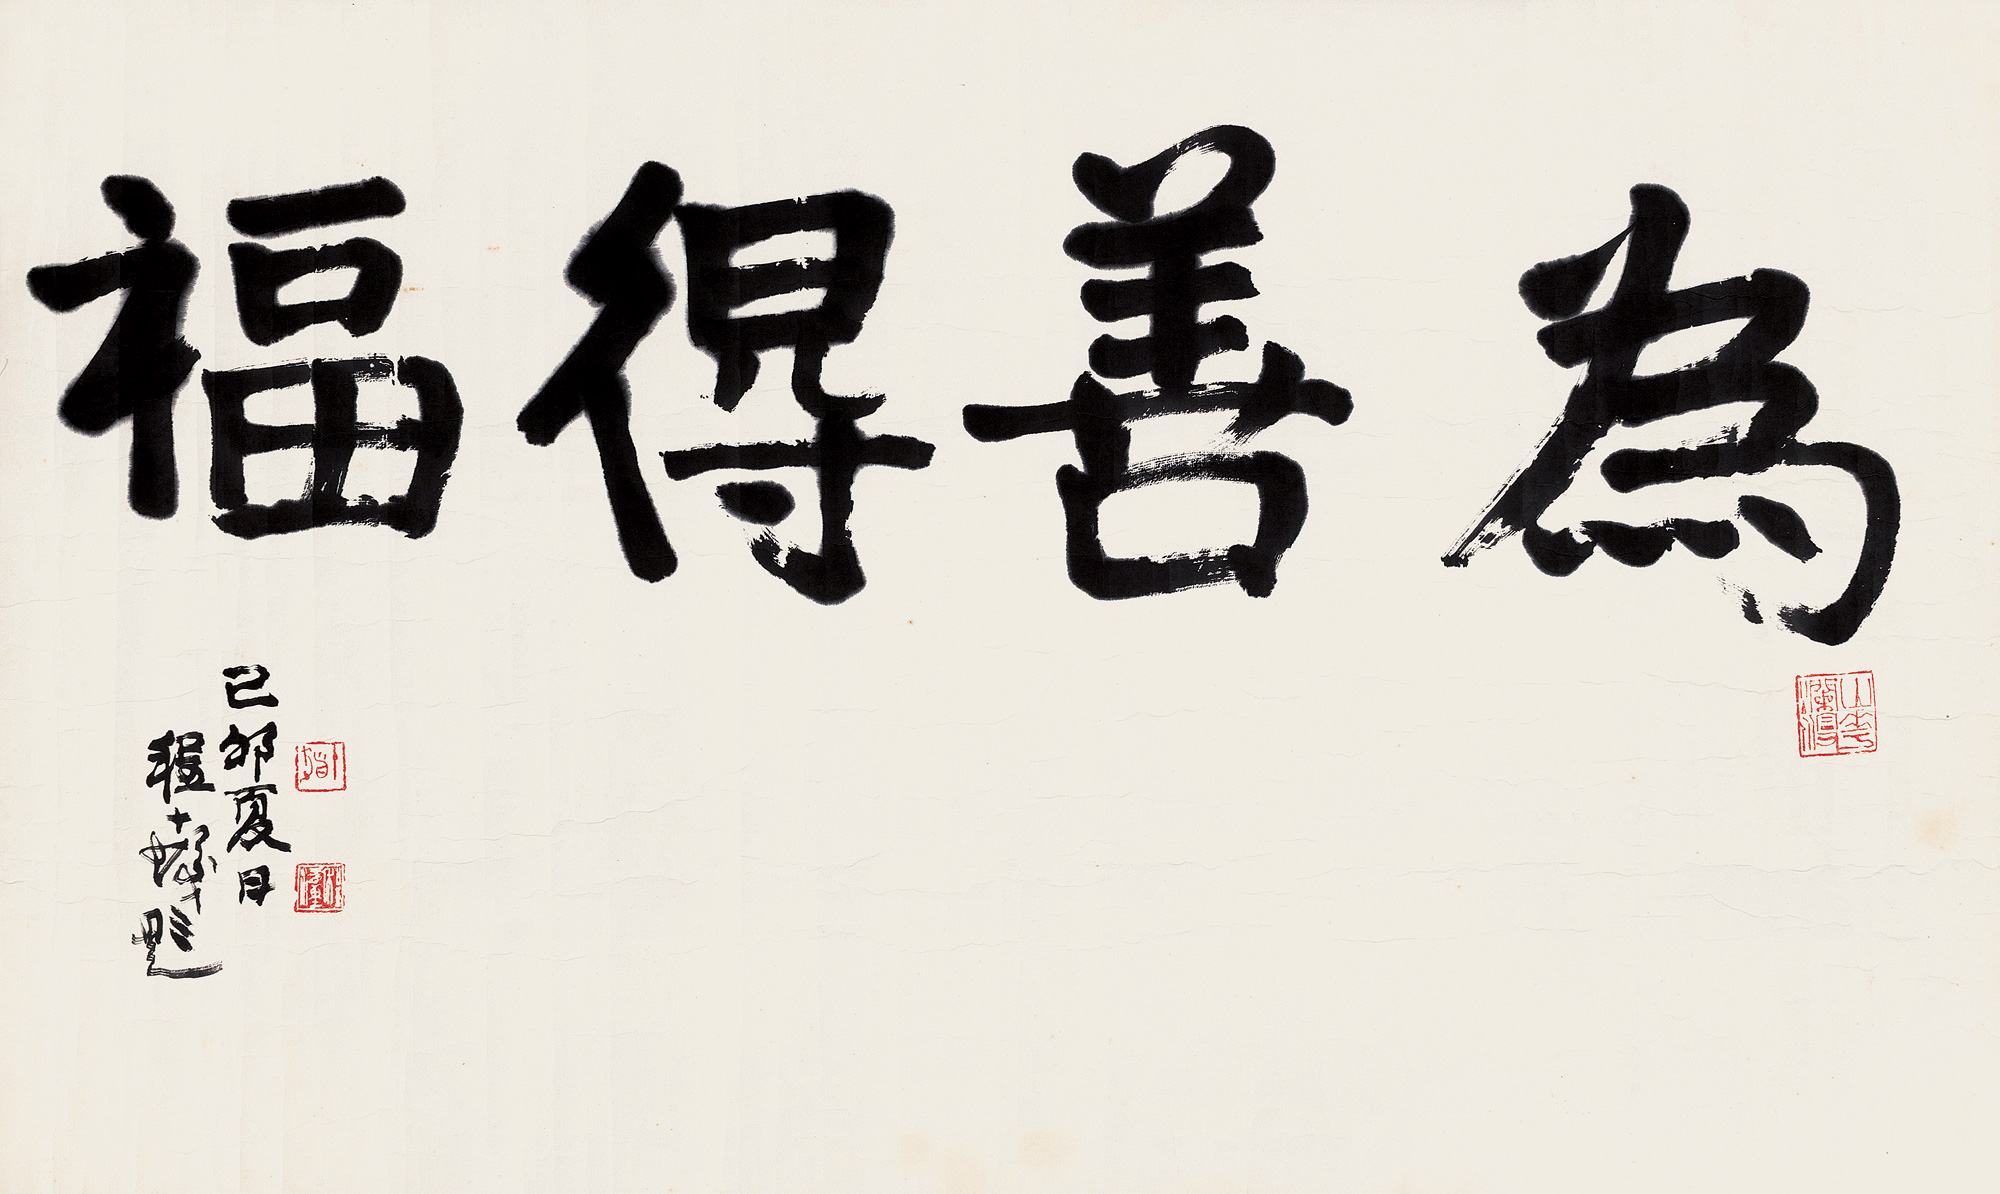 為善得福
己卯夏日
程十髮題